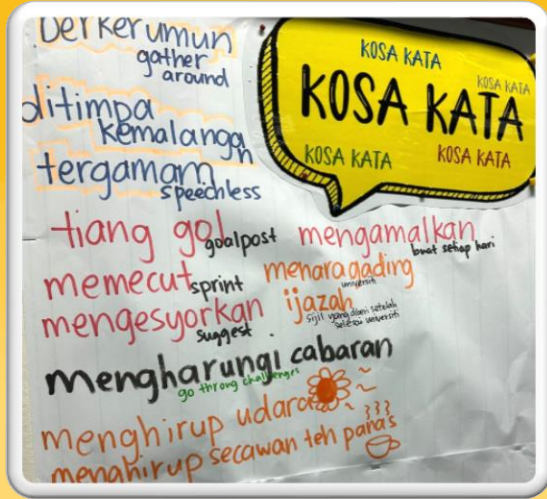 berkerumun
gather
around
ditimpa
kemalangan
tergamam
speechless
KOSA KATA
KOSA KATA
KOSA KATA
KOSA KATA
KOSA KATA
tiang gol
goalpost
mengamalkan
buat setiap hari
memecut
sprint
menara gading
universiti
mengesyorkan
suggest
ijazah
sijil yang diberi setelah
selesai universiti
mengharungi cabaran
go throug challenges
menghirup udara
menghirup secawan teh panas